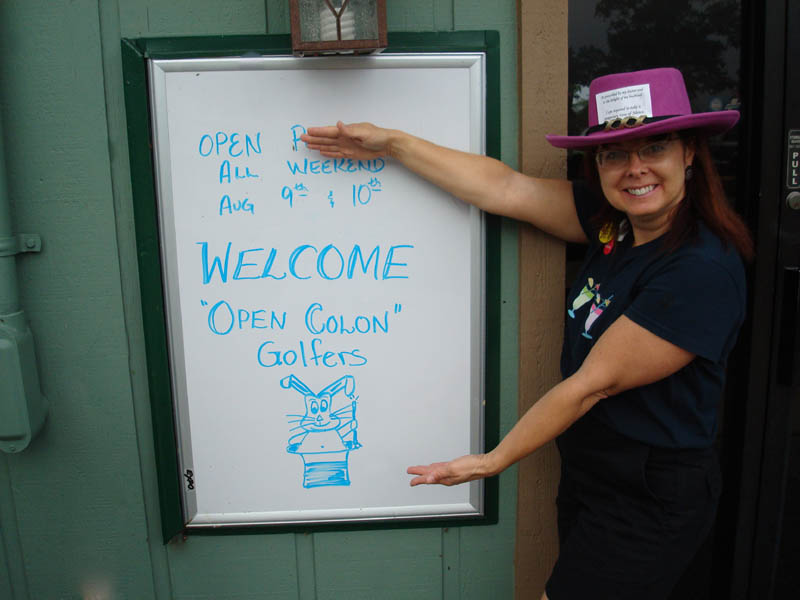 OPEN
ALL WEEKEND
AUG 9th & 10th
WELCOME
"OPEN COLON"
Golfers
PULL